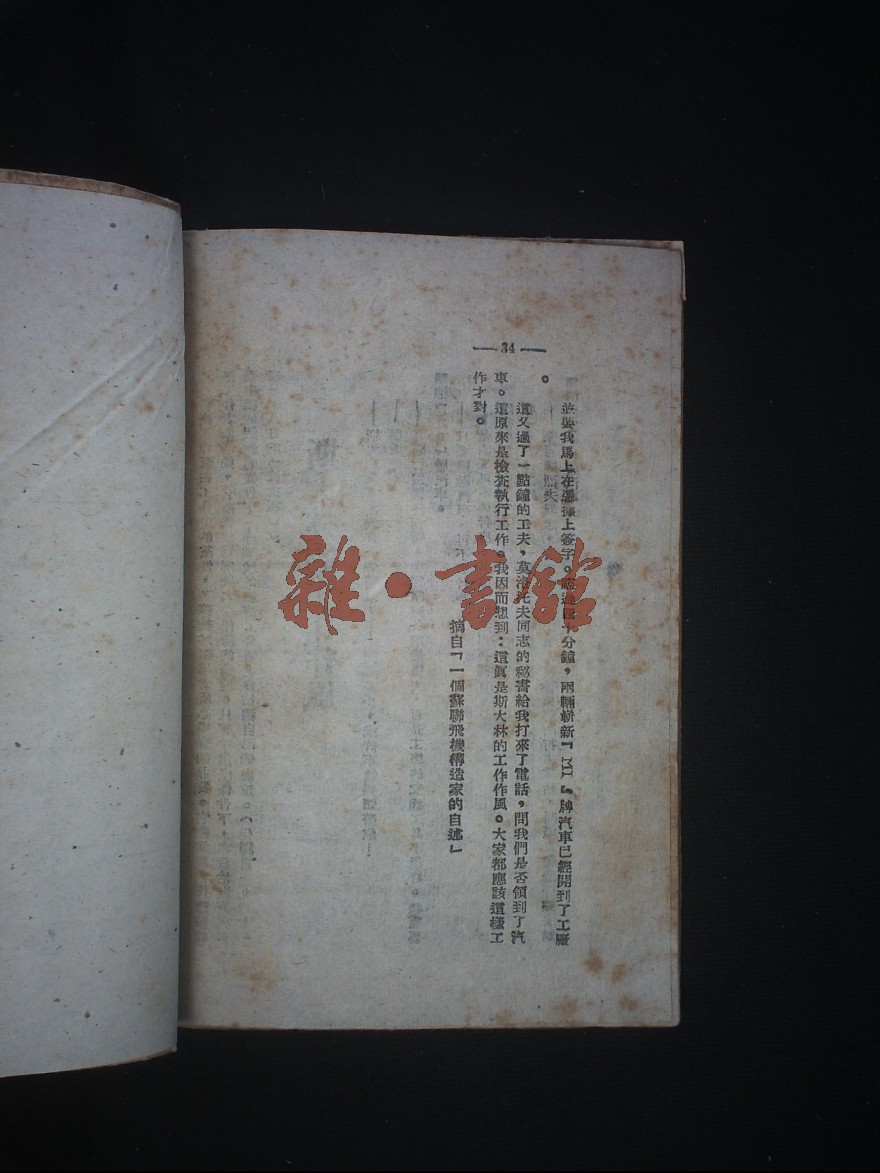 — 34 —
並要我馬上在憑據上簽字。 分鐘,兩輛嶄新「M1」牌汽車已經開到了工廠
。
這又過了一點鐘的工夫,莫洛托夫同志的秘書給我打來了電話,問我們是否領到了汽
車。這原來是檢查執行工作。我因而想到:這眞是斯大林的工作作風。大家都應該這樣工
作才對。
摘自「一個蘇聯飛機構造家的自述」
雜·書館